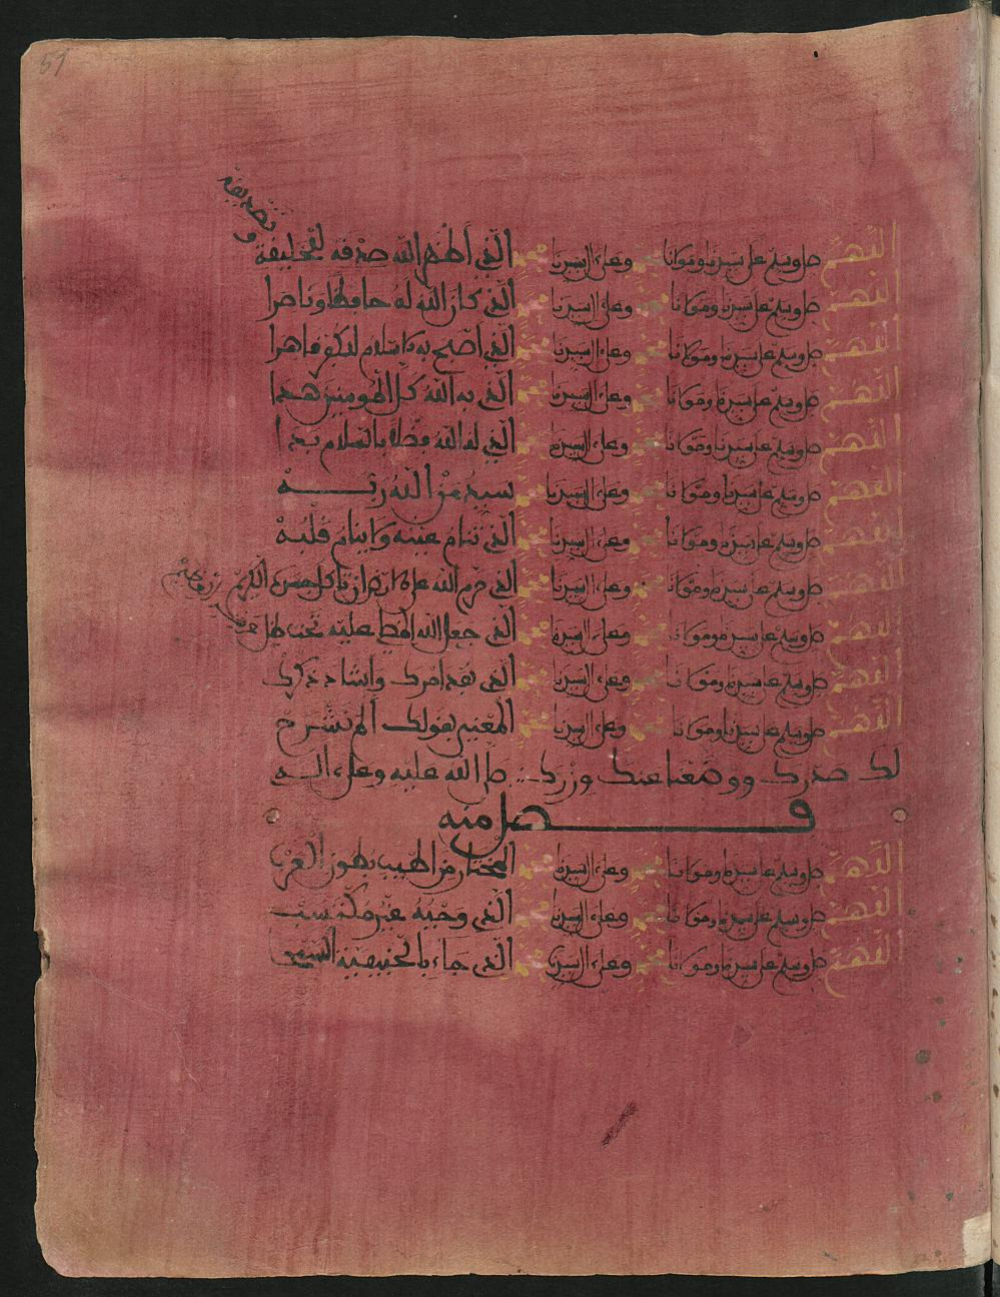 51
اللهم صل وسلم على سيدنا ومولانا محمد وعلى آل سيدنا محمد الذي أظهر الله صدقه لخليقة
وتصديقه
اللهم صل وسلم على سيدنا ومولانا محمد وعلى آل سيدنا محمد الذي كان الله له حافظا وناصرا
اللهم صل وسلم على سيدنا ومولانا محمد وعلى آل سيدنا محمد الذي أصبح به الإسلام للكفر قاهرا
اللهم صل وسلم على سيدنا ومولانا محمد وعلى آل سيدنا محمد الذي به الله كل المومنين هدا
اللهم صل وسلم على سيدنا ومولانا محمد وعلى آل سيدنا محمد الذي لقاالله بالسلام بدا
اللهم صل وسلم على سيدنا ومولانا محمد وعلى آل سيدنا محمد سيد من الله ربه
اللهم صل وسلم على سيدنا ومولانا محمد وعلى آل سيدنا محمد الذي تنام عينه ولا ينام قلبه
اللهم صل وسلم على سيدنا ومولانا محمد وعلى آل سيدنا محمد الذي حرم الله على الارض ان تاكل جسده الكريم
اللهم صل وسلم على سيدنا ومولانا محمد وعلى آل سيدنا محمد الذي جعل الله المصلى عليه تحت ظل
اللهم صل وسلم على سيدنا ومولانا محمد وعلى آل سيدنا محمد الذي نفذ امرك وأشاد ذكرك
اللهم صل وسلم على سيدنا ومولانا محمد وعلى آل سيدنا محمد المعني بقولك ألم نشرح
لك صدرك ووضعنا عنك وزرك صلى الله عليه وعلى آله
فصل منه
اللهم صل وسلم على سيدنا ومولانا محمد وعلى آل سيدنا محمد المختار من اطيب بطون العرب
اللهم صل وسلم على سيدنا ومولانا محمد وعلى آل سيدنا محمد الذي وجبه
اللهم صل وسلم على سيدنا ومولانا محمد وعلى آل سيدنا محمد الذي جاء بالحنيفية السمحا